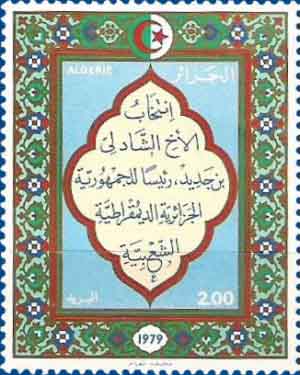 ALGERIE الجزائر
إنتخاب
الأخ الشاذلي
بن جديد، رئيسًا للجمهورية
الجزائرية الديمقراطية
الشعبية
البريد 2.00
1979